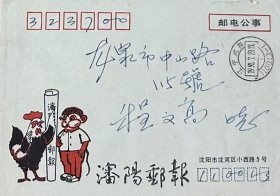 323700
邮电公事
龙泉市中山路
15号
程文高 收
瀋陽郵報
瀋陽郵報
沈阳市沈河区小西路5号
110013